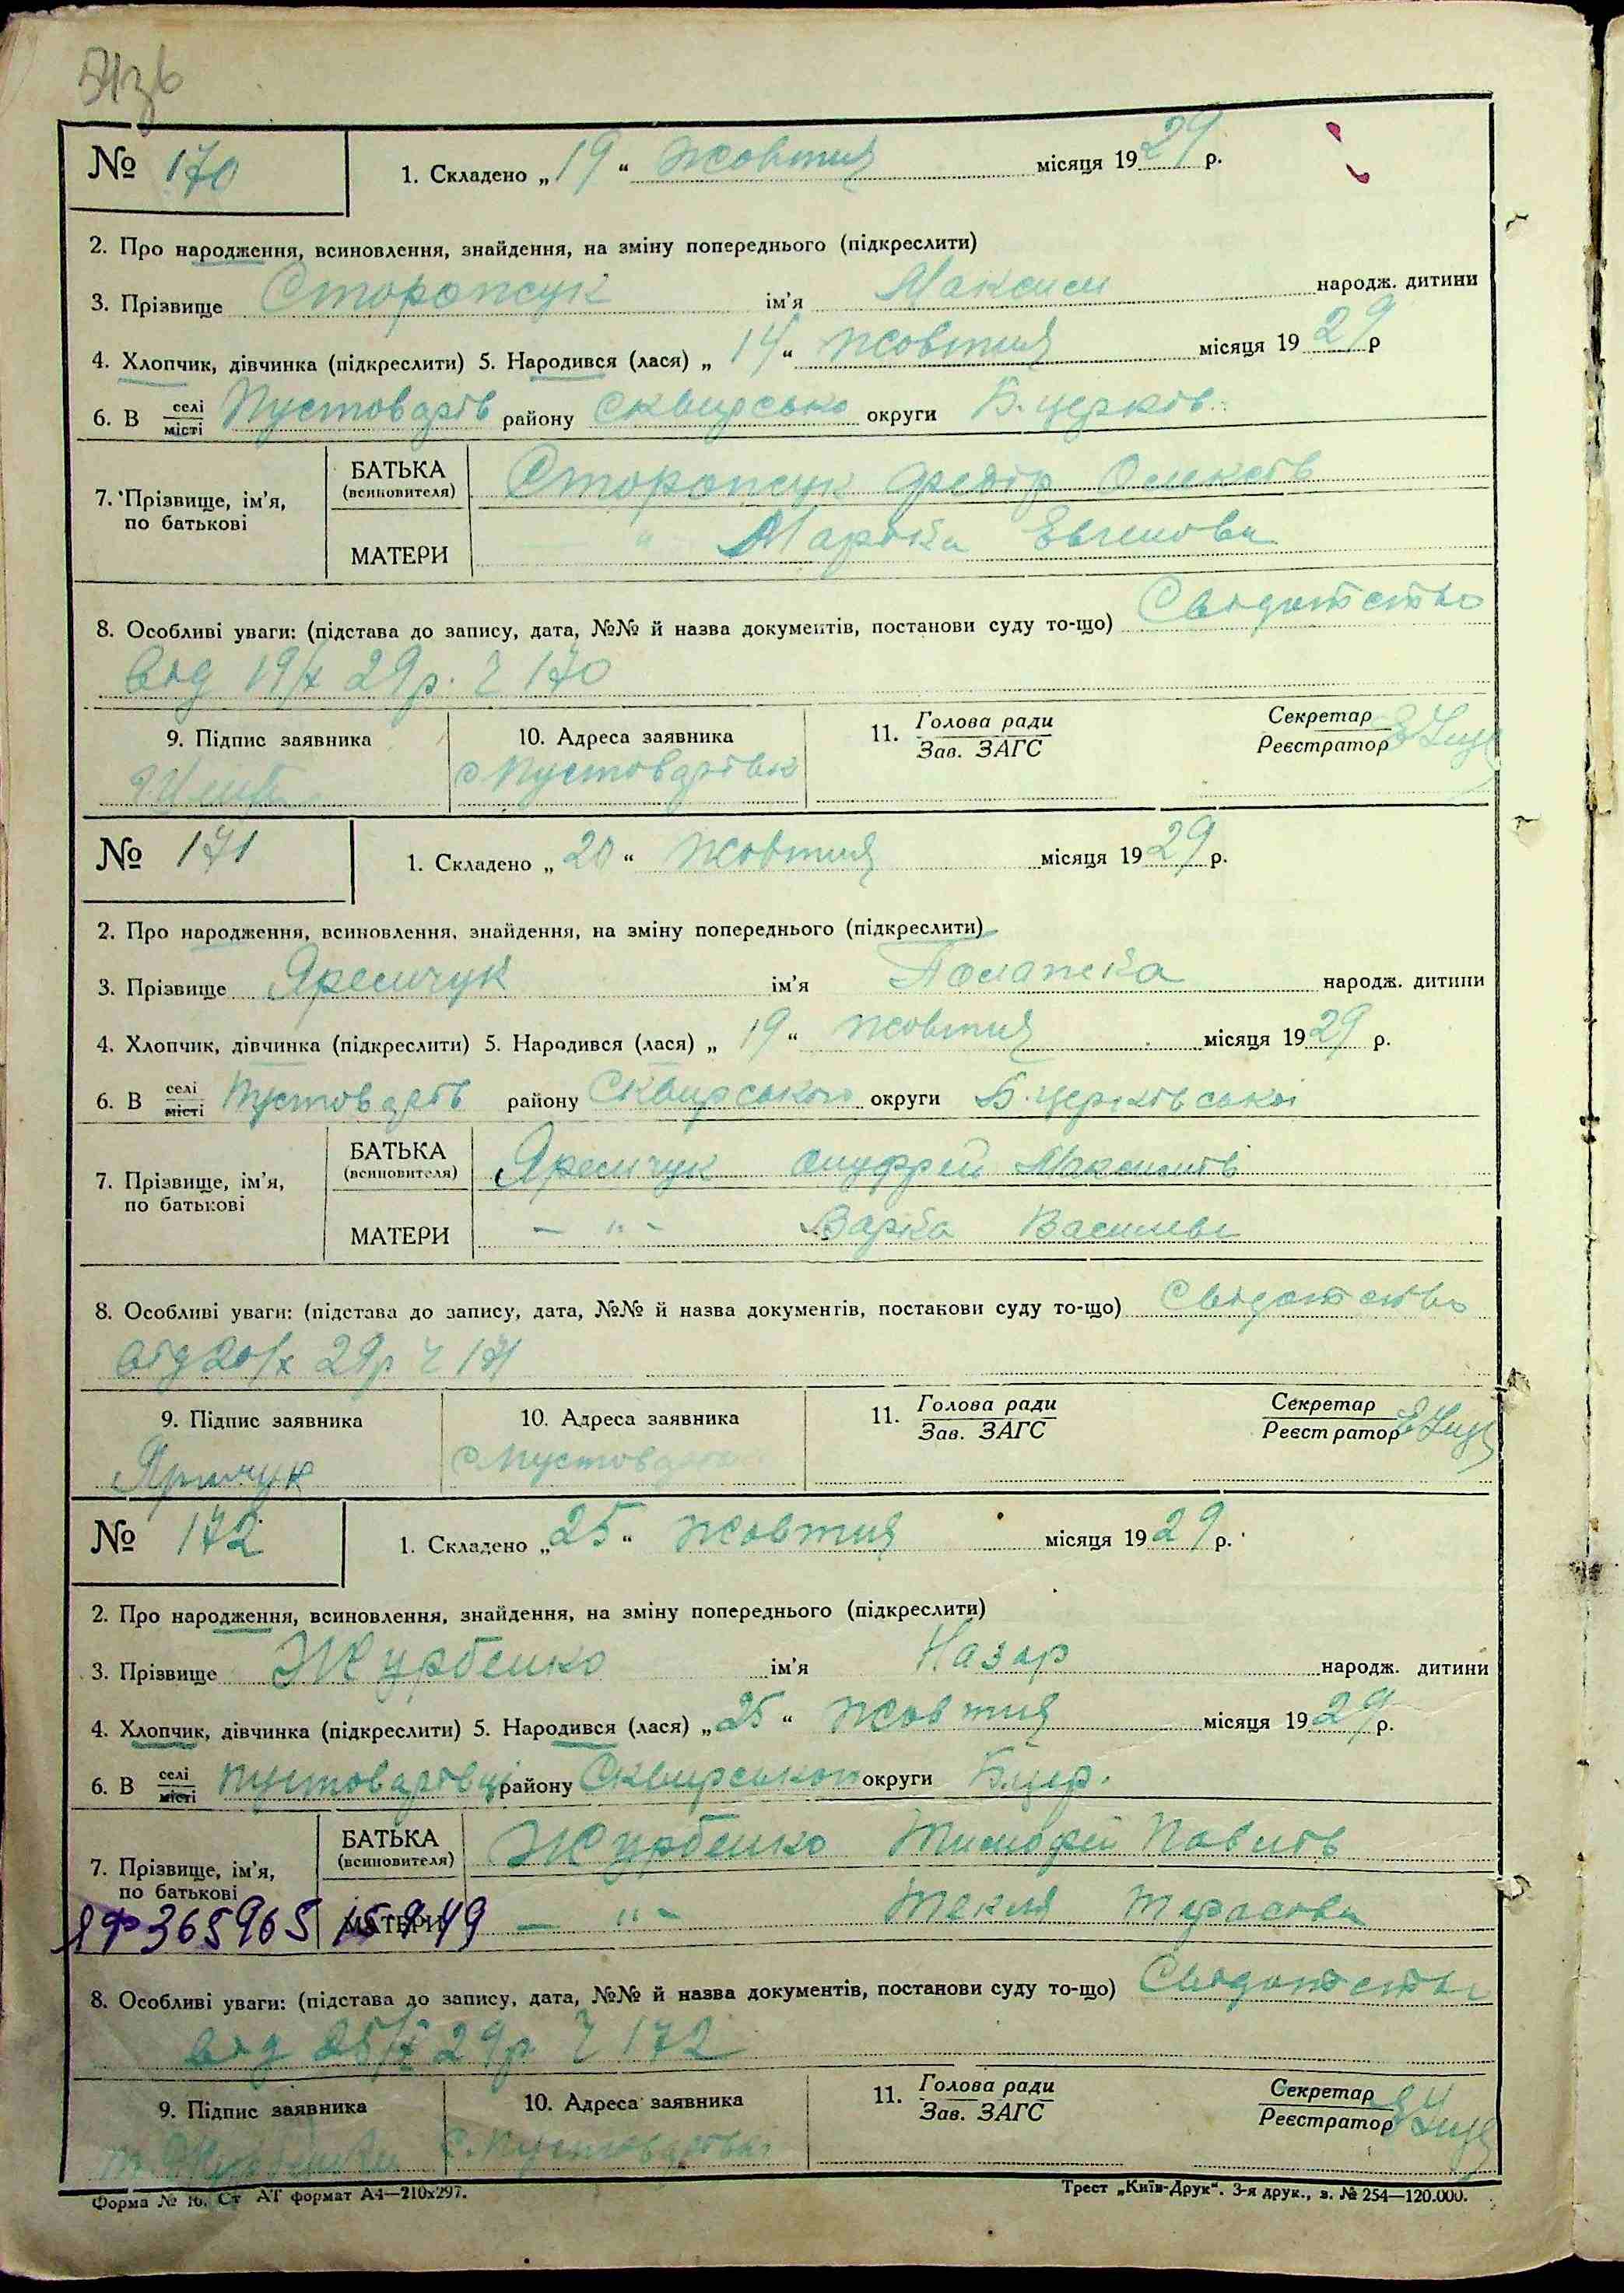 № 170
1. Складено „19“ жовтня місяця 1929 р.
2. Про народження, всиновлення, знайдення, на зміну попереднього (підкреслити)
3. Прізвище Сторожук ім'я Максим народж. дитини
4. Хлопчик, дівчинка (підкреслити) 5. Народився (лася) „14“ жовтня місяця 1929 р
6. В селі/місті Пустоварів району Сквирсько округи Б.церків.
7. Прізвище, ім'я, по батькові
БАТЬКА (всиновителя) Сторожук Федір Олексів
МАТЕРИ " Марійка Евгенова
8. Особливі уваги: (підстава до запису, дата, №№ й назва документів, постанови суду то-що) Свидотство
від 19/X 29р. Ч 170
9. Підпис заявника
10. Адреса заявника
с Пустоварівка
11. Голова ради
Зав. ЗАГС
Секретар
Реєстратор
№ 171
1. Складено „20“ жовтня місяця 1929 р.
2. Про народження, всиновлення, знайдення, на зміну попереднього (підкреслити)
3. Прізвище Яремчук ім'я Палажка народж. дитини
4. Хлопчик, дівчинка (підкреслити) 5. Народився (лася) „19“ жовтня місяця 1929 р.
6. В селі/місті Пустоварів району Сквирського округи Б.церківської
7. Прізвище, ім'я, по батькові
БАТЬКА (всиновителя) Яремчук Онуфрей Максимів
МАТЕРИ — " — Варка Васильев
8. Особливі уваги: (підстава до запису, дата, №№ й назва документів, постанови суду то-що) Свидотство
від 20/X 29р Ч 171
9. Підпис заявника
10. Адреса заявника
с Пустовар
11. Голова ради
Зав. ЗАГС
Секретар
Реєстратор
№ 172
1. Складено „25“ жовтня місяця 1929 р.
2. Про народження, всиновлення, знайдення, на зміну попереднього (підкреслити)
3. Прізвище Журбенко ім'я Назар народж. дитини
4. Хлопчик, дівчинка (підкреслити) 5. Народився (лася) „25“ жовтня місяця 1929 р.
6. В селі/місті Пустоварівці району Сквирського округи Б.цер.
7. Прізвище, ім'я, по батькові
БАТЬКА (всиновителя) Журбенко Тимофей Павлів
МАТЕРИ — " — Текля Тарасова
ЯФ 365965
8. Особливі уваги: (підстава до запису, дата, №№ й назва документів, постанови суду то-що) Свидотство
від 25/X 29р Ч 172
9. Підпис заявника
10. Адреса заявника
Т. Журбенко
с. Пустоварівка
11. Голова ради
Зав. ЗАГС
Секретар
Реєстратор
Форма № 1б. Ст АТ формат А4—210х297.
Трест „Київ-Друк“. 3-я друк., з. № 254—120.000.